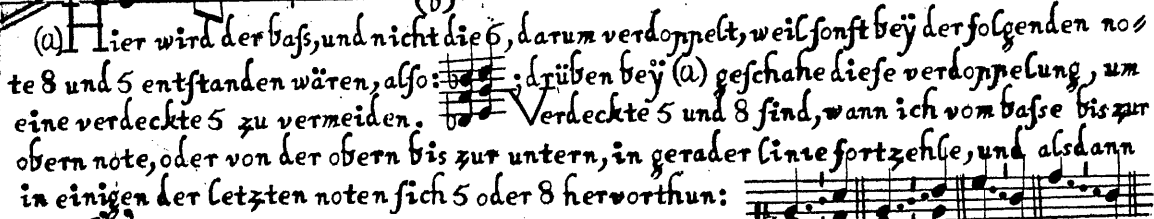 (b)
(a) Hier wird der baſs, und nicht die 6, darum verdoppelt, weil ſonſt beÿ der folgenden no⸗
te 8 und 5 entſtanden wären, alſo: ; drüben beÿ (a) geſchahe dieſe verdoppelung, um
eine verdeckte 5 zu vermeiden. Verdeckte 5 und 8 ſind, wann ich vom baſse bis zur
obern note, oder von der obern bis zur untern, in gerader linie fortzehle, und alsdann
in einigen der letzten noten ſich 5 oder 8 hervorthun: